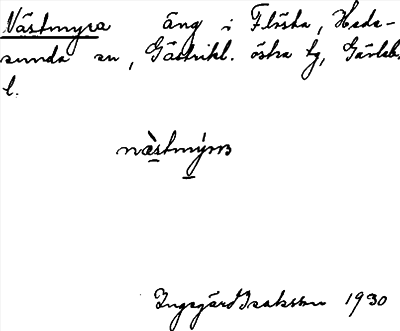 Västmyra äng i Flösta, Heda-
sunda sn, Gästrikl. östra tg, Gävleb.
l.
næ̀stmy̌rɒ
Ingegärd Isaksson 1930